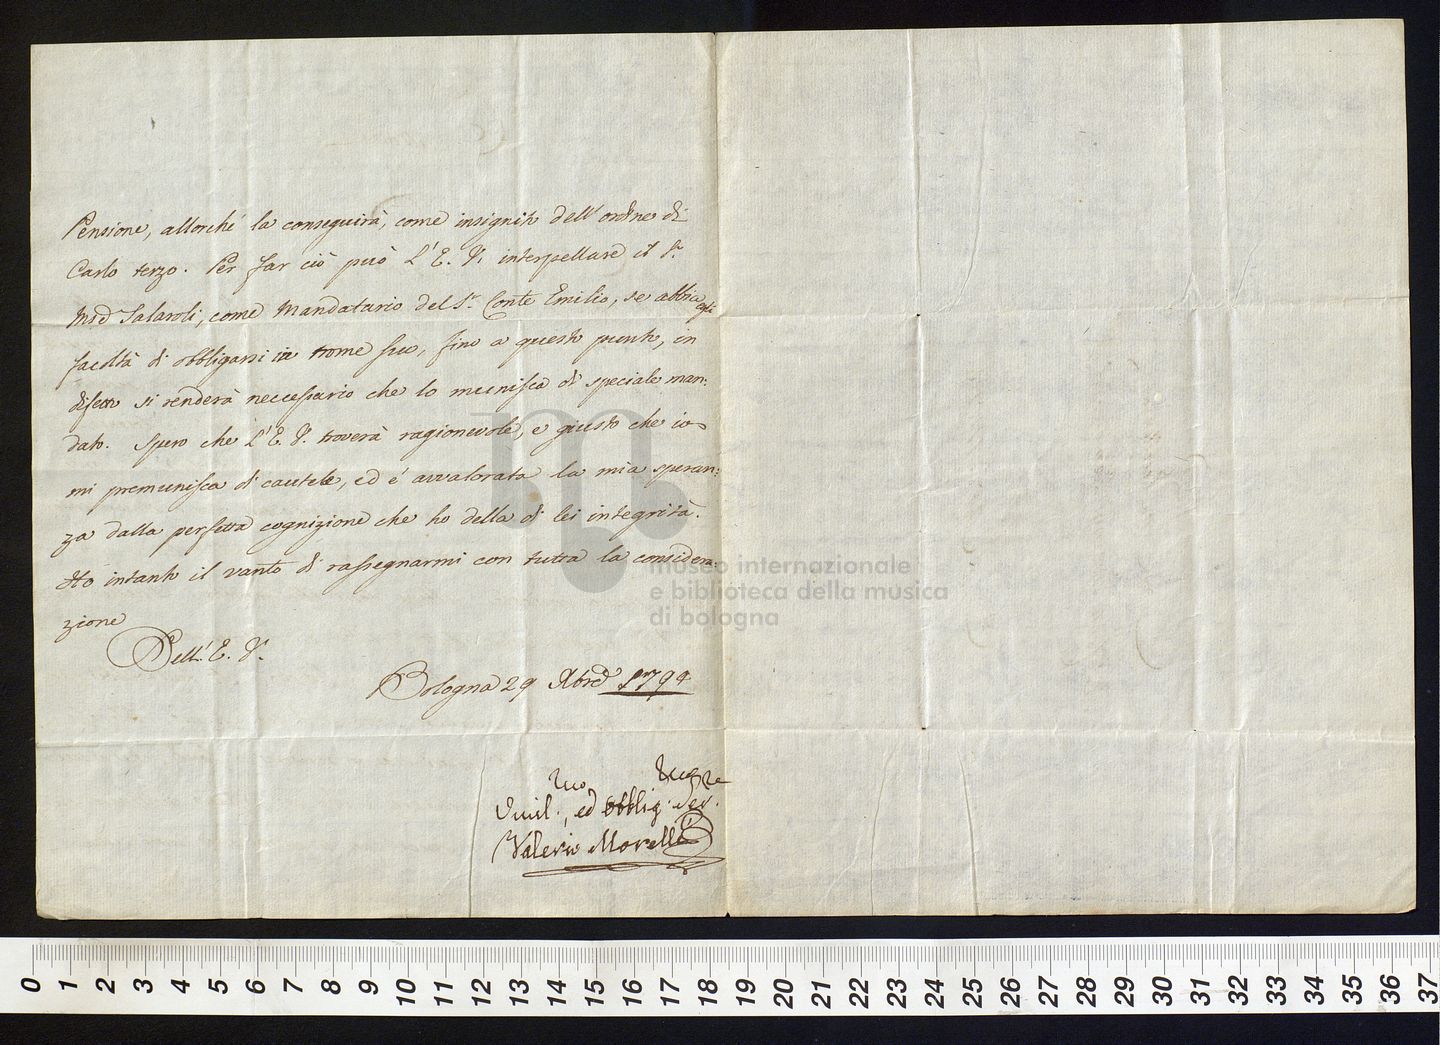 Pensione, allorché la conseguirà, come insignito dell'ordine di
Carlo terzo. Per far ciò può L'E. V. interpellare il Sr.
Salaroli, come Mandatario del Sr. Conte Emilio, se abbia egli
facoltà di obbligarsi in nome suo, fino a questo punto, in
difetto si renderà neccessario che lo munisca di speciale man:
dato. Spero che L'E. V. troverà ragionevole, e giusto che io
mi premunisca di cautele, ed é avvalorata la mia speran:
za dalla perfetta cognizione che ho della di lei integrità.
Ho intanto il vanto di rassegnarmi con tutta la considera:
zione
Dell'E. V.
Bologna 29 1794
Umil., ed Obblig. Ser.
Valerio Morelli
museo internazionale
e biblioteca della musica
di bologna
0 1 2 3 4 5 6 7 8 9 10 11 12 13 14 15 16 17 18 19 20 21 22 23 24 25 26 27 28 29 30 31 32 33 34 35 36 37